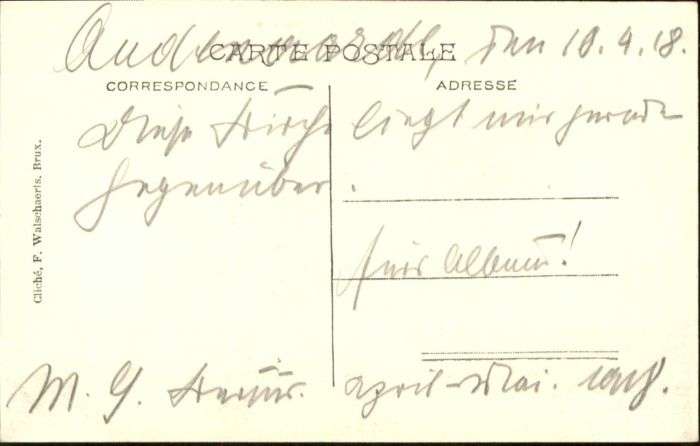 Audenaarde, den 10.4.18.
CARTE POSTALE
CORRESPONDANCE
ADRESSE
Diese Kirche liegt mir gerade
gegenüber.
fürs Album!
M. G. April–Mai. 1918.
Cliché, F. Walschaerts, Brux.